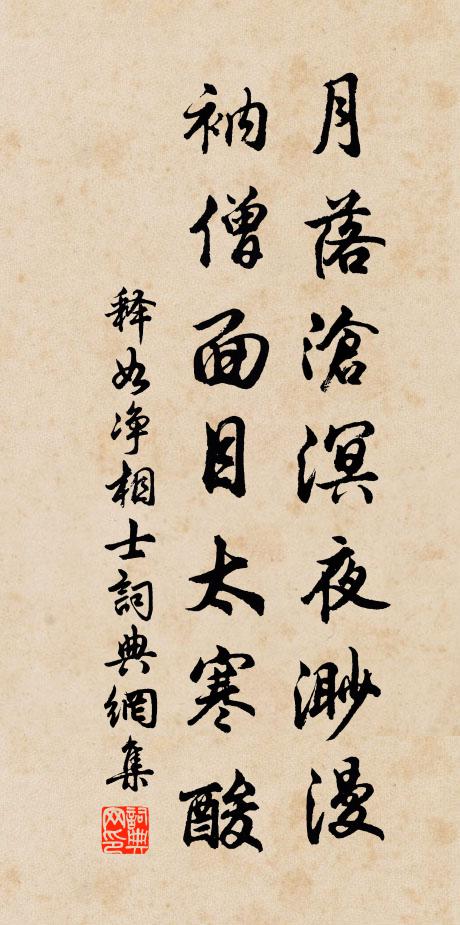 月落滄溟夜渺漫
衲僧面目太寒酸
释如净相士詞典網集
詞典网印